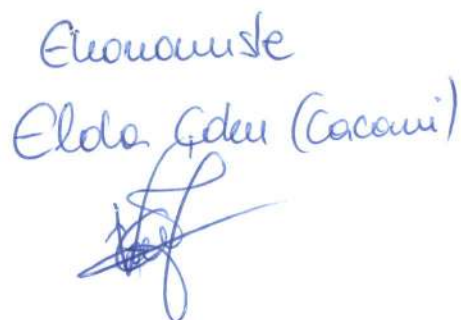 Ekonomiste
Elda Çdeu (Cacani)